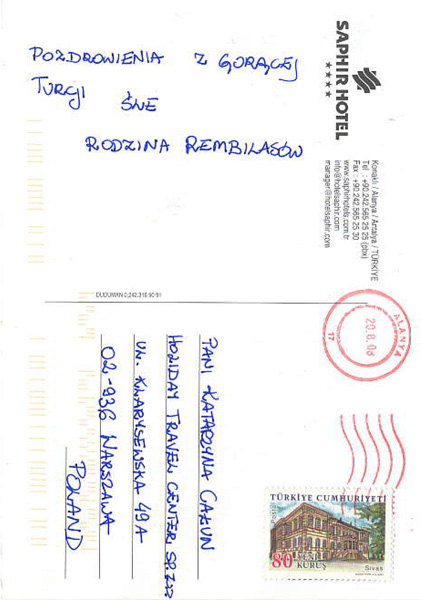 POZDROWIENIA Z GORĄCEJ
TURCJI ŚLE
RODZINA REMBILASÓW
SAPHIR HOTEL
★★★★
Konaklı / Alanya / Antalya / TÜRKİYE
Tel : +90.242.565 25 25 (pbx)
Fax : +90.242.565 25 30
www.saphirhotels.com.tr
info@hotelsaphir.com
manager@hotelsaphir.com
DUDUMAN 0.242.316 90 91
ALANYA
20.8.08
17
PANI KATARZYNA
HOLIDAY TRAVEL CENTER SP. Z O.O
UL. KLARYSEWSKA 49A
02-936 WARSZAWA
POLAND
TÜRKİYE CUMHURİYETİ
80 YENİ
KURUŞ
Sivas